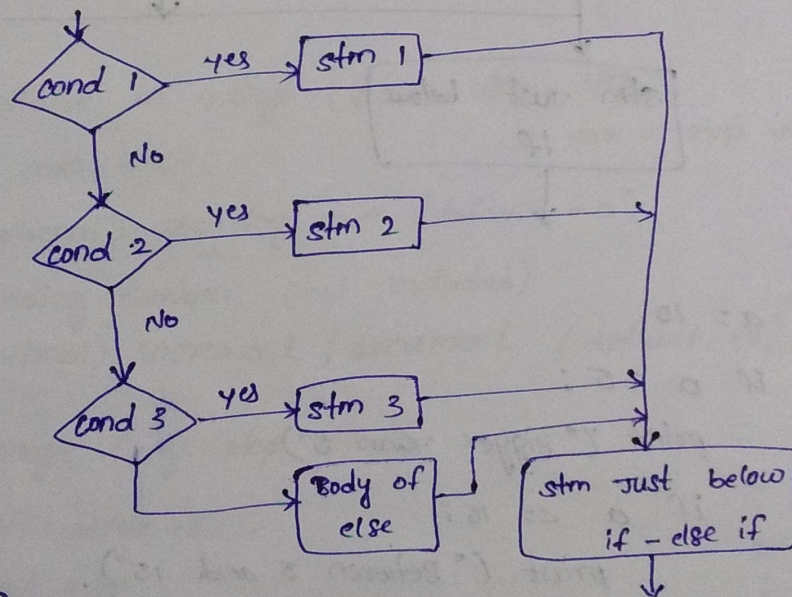 cond 1
yes
stm 1
No
cond 2
yes
stm 2
No
cond 3
yes
stm 3
Body of
else
stm Just below
if - else if